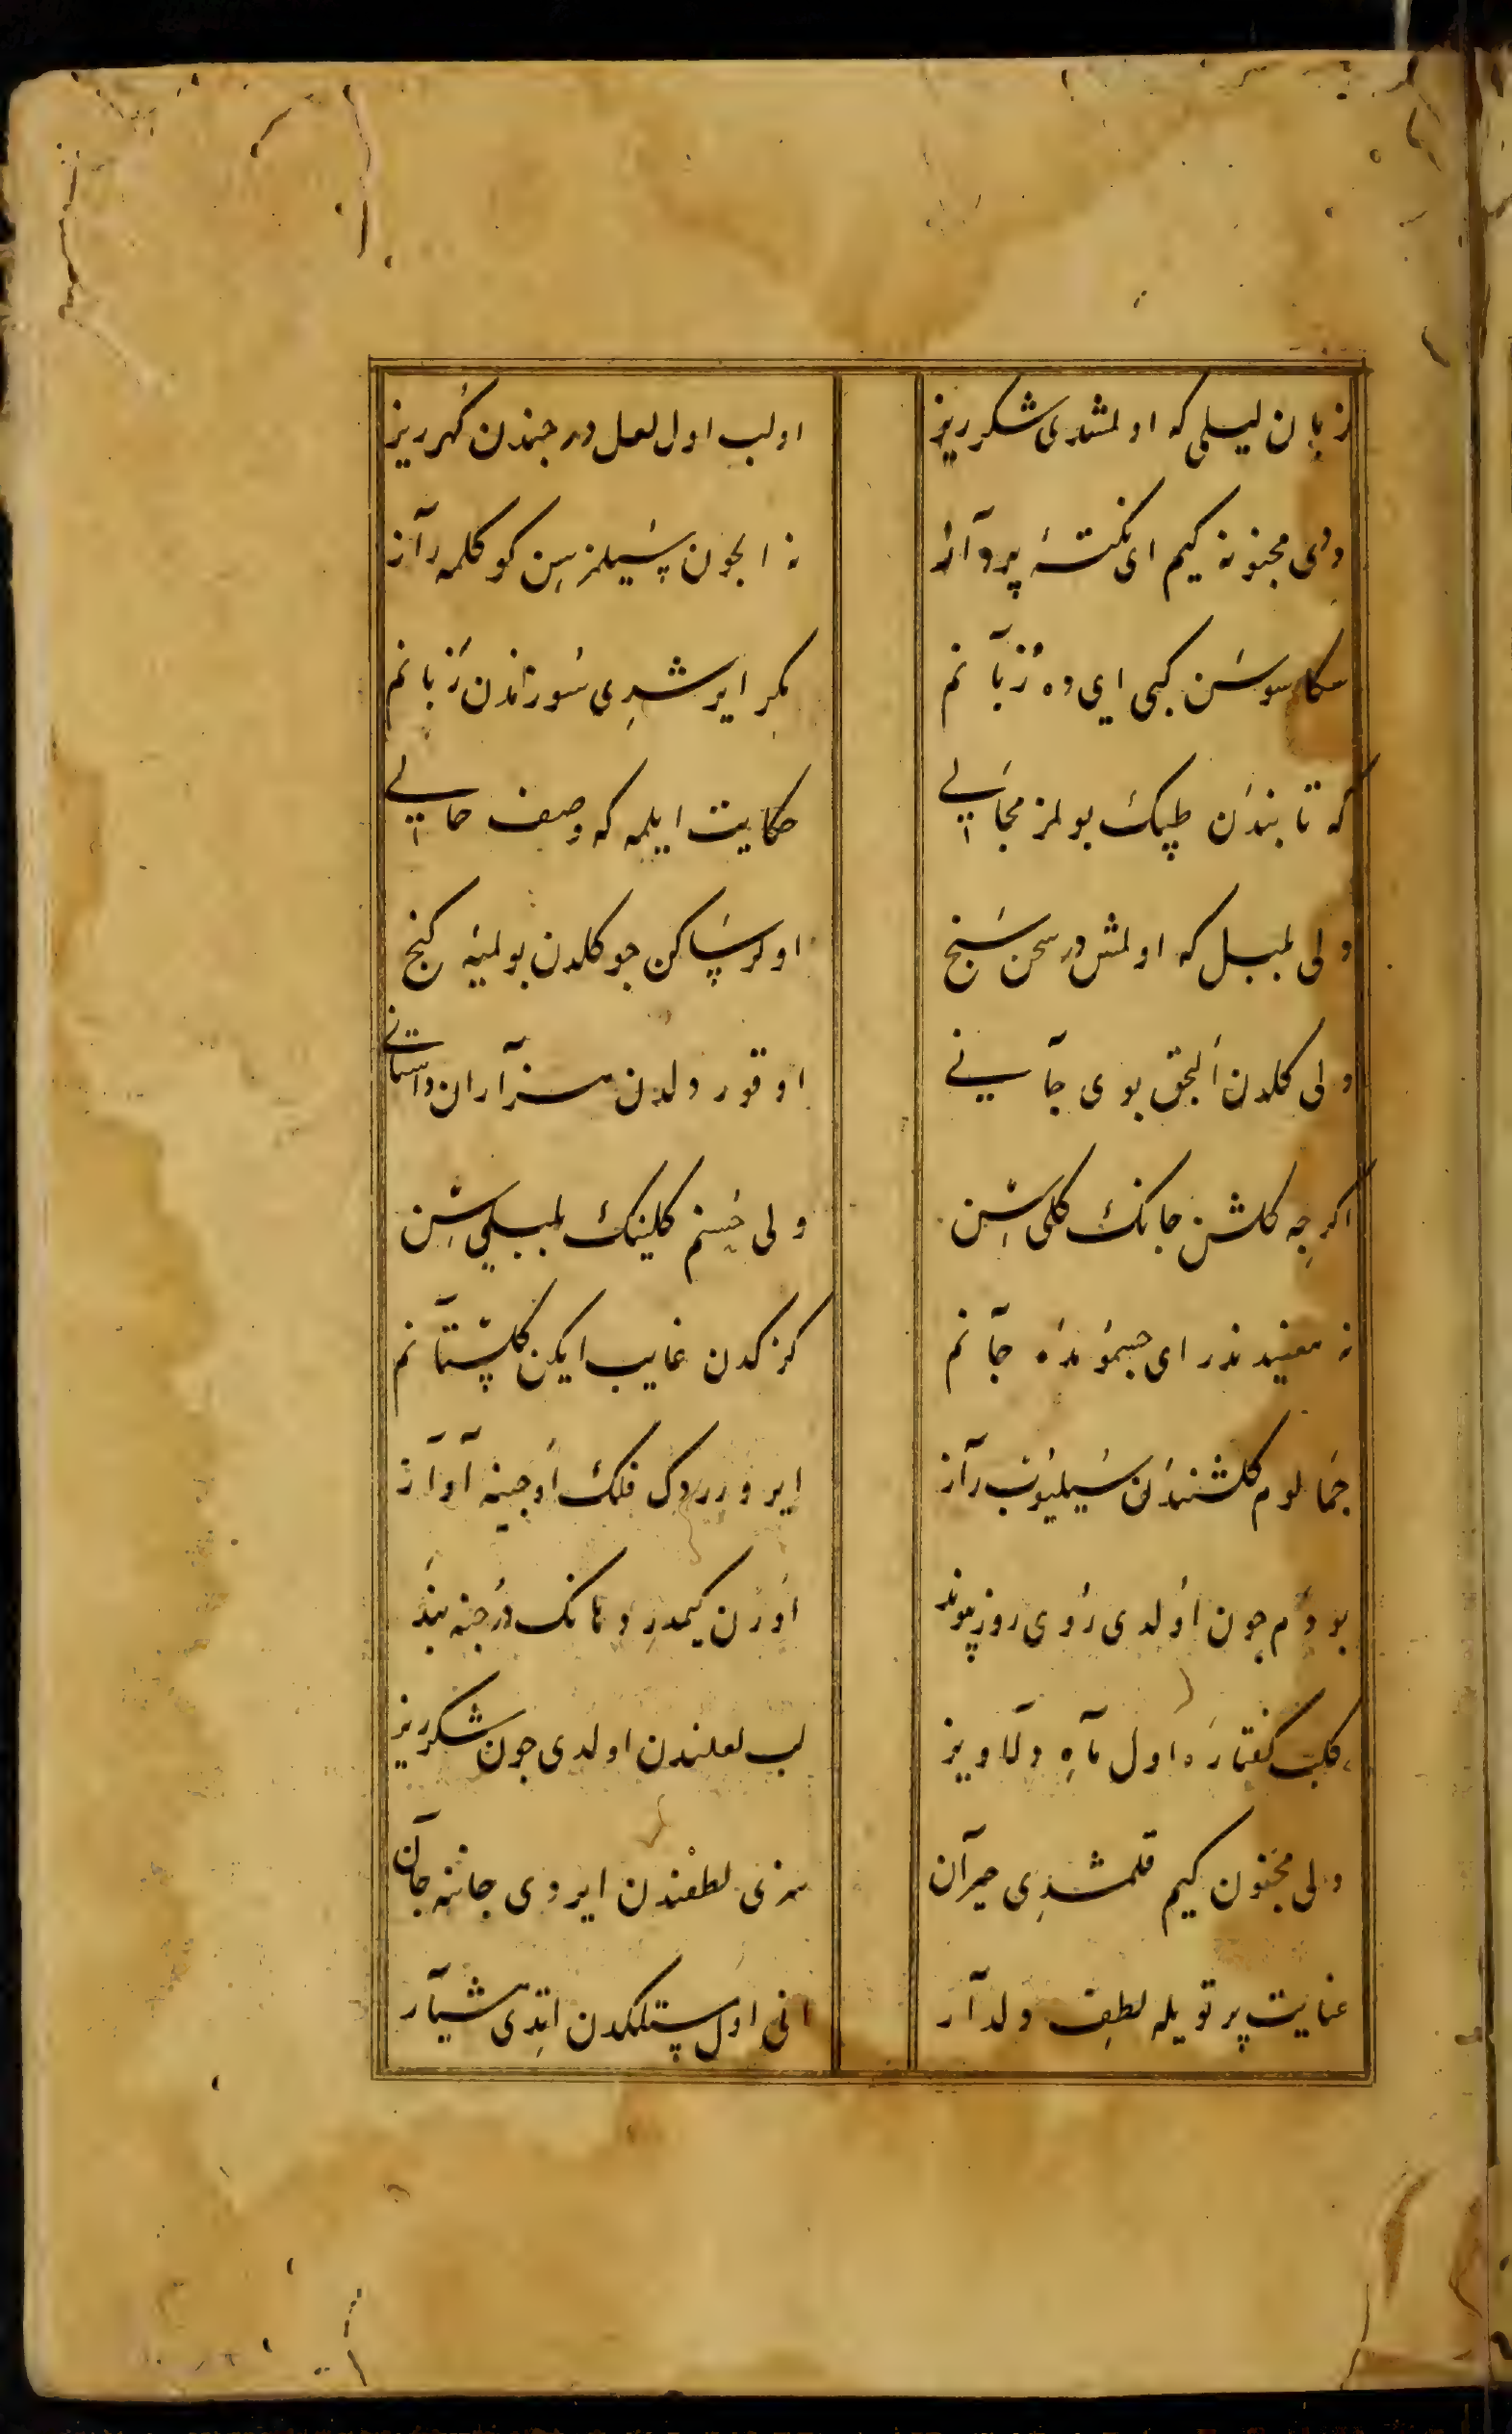 زبان لیلی که اولمشدی شکرریز اولب اول لعل درجندن گهرریز
ددی مجنونه کیم ای نکته پرداز نه ایچون سیلمزسن کوکلمه راز
سکا سوسن کبی ای ده زبانم مکر ایرشدی سوزاندن زبانم
که تا بندن طپمک بولمز مجالی حکایت ایلمه که وصف حالی
ولی بلبل که اولمش در سخن سنج اولر ساکن جو کلدن بولمیه کنج
ولی کلدن الجق بوی جانی اوقور دلدن هزاران داستانی
اکرجه کلشن جانک کلی سن ولی حسنم کلینک بلبلی سن
نه معنیدندر ای جسمونده جانم کزکدن غایب ایکن کلستانم
جمالوم کلشنندن سیلیوب راز ایرورردک فلک اوجینه آواز
بو دم جون اولدی روی روز پیوند اورن کیمدر دهانک درجنه بند
کلب کفتاره اول ماه دلاویز لب لعلندن اولدی جون شکرریز
ولی مجنون کیم قلمشدی حیران سوزی لطفندن ایردی جاننه جان
عنایت پرتویله لطف دلدار انی اول مستلکدن ایتدی هشیار